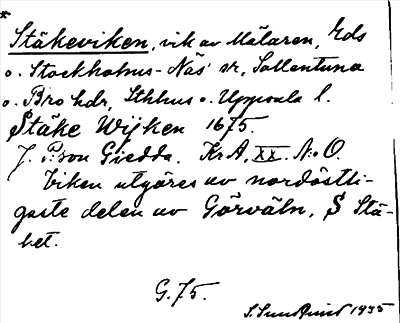 *
Stäkeviken, vik av Mälaren, Eds
o. Stockholms-Näs sr, Sollentuna
o. Bro hdr, Sthlms o. Uppsala l.
Stäke Wijken 1675.
J. P:son Giedda. Kr A, XX. N:o O.
Viken utgöres av nordöstli-
gaste delen av Görväln, S Stä-
ket.
G. 75.
S. Sundkvist 1935